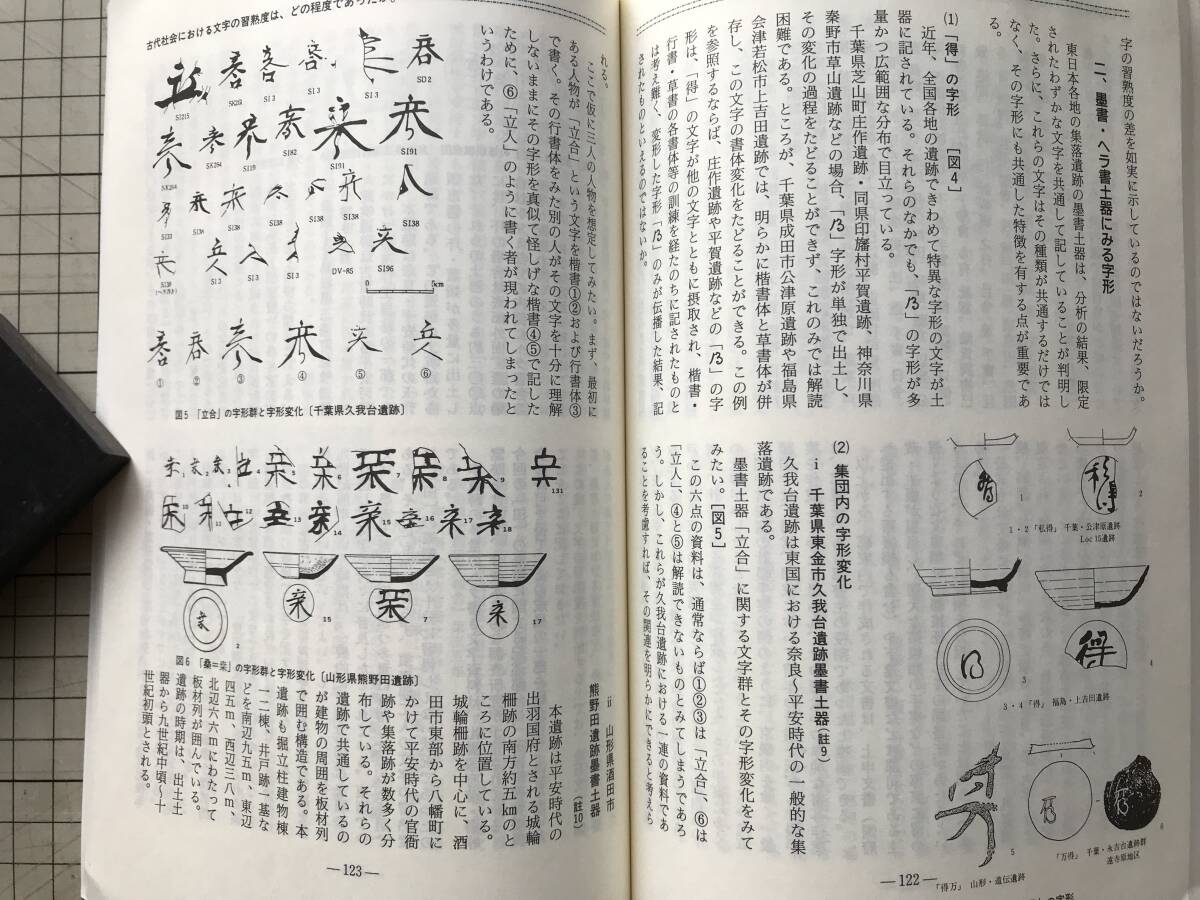 字の習熟度の差を如実に示しているのではないだろうか。
二、墨書・ヘラ書土器にみる字形
東日本各地の集落遺跡の墨書土器は、分析の結果、限定
されたわずかな文字を共通して記していることが判明し
た。さらに、これらの文字はその種類が共通するだけでは
なく、その字形にも共通した特徴を有する点が重要であ
る。
(1) 「得」の字形 [図4]
近年、全国各地の遺跡できわめて特異な字形の文字が土
器に記されている。それらのなかでも、「」の字形が多
量かつ広範囲な分布で目立っている。
千葉県芝山町庄作遺跡・同県印旛村平賀遺跡、神奈川県
秦野市草山遺跡などの場合、「」字形が単独で出土し、
その変化の過程をたどることができず、これのみでは解読
困難である。ところが、千葉県成田市公津原遺跡や福島県
会津若松市上吉田遺跡では、明らかに楷書体と草書体が併
存し、この文字の書体変化をたどることができる。この例
を参照するならば、庄作遺跡や平賀遺跡などの「」の字
形は、「得」の文字が他の文字とともに摂取され、楷書・
行書・草書の各書体等の訓練を経たのちに記されたものと
は考え難く、変形した字形「」のみが伝播した結果、記
されたものといえるのではないか。
(2) 集団内の字形変化
i 千葉県東金市久我台遺跡墨書土器(註9)
久我台遺跡は東国における奈良〜平安時代の一般的な集
落遺跡である。
墨書土器「立合」に関する文字群とその字形変化をみて
みたい。[図5]
この六点の資料は、通常ならば①②③は「立合」、⑥は
「立人」、④と⑤は解読できないものとみてしまうであろ
う。しかし、これらが久我台遺跡における一連の資料であ
ることを考慮すれば、その関連を明らかにできると考えら
1
2
1・2「私得」 千葉・公津原遺跡
Loc15遺跡
得
3
4
3・4「得」 福島・上吉田遺跡
5
6
「得万」 山形・道伝遺跡
「万得」 千葉・永吉台遺跡群
遠寺原地区
の字形
—122—
古代社会における文字の習熟度は、どの程度であったか。
れる。
ここで仮に三人の人物を想定してみたい。まず、最初に
ある人物が「立合」という文字を楷書①②および行書体③
で書く。その行書体をみた別の人がその文字を十分に理解
しないままにその字形を真似て怪しげな楷書④⑤で記した
ために、⑥「立人」のように書く者が現われてしまったと
いうわけである。
SI215
SK203
SI3
SI3
SI3
SD2
SK264
SK264
SI19
SI82
SI91
SI91
SI33
SI38
SI38
SI38
SI38
SI38
SI38
SI3
SI3
DV-RS
SI96
0
5cm
① ② ③ ④ ⑤ ⑥
図5 「立合」の字形群と字形変化〔千葉県久我台遺跡〕
1 2 3 4 5 6 7 8 9 131
10 11 12 13 14 15 16 17 18
2
15
7
17
図6 「桑=桒」の字形群と字形変化〔山形県熊野田遺跡〕
ii 山形県酒田市
熊野田遺跡墨書土器
(註10)
本遺跡は平安時代の
出羽国府とされる城輪
柵跡の南方約五㎞のと
ころに位置している。
城輪柵跡を中心に、酒
田市東部から八幡町に
かけて平安時代の官衙
跡や集落跡が数多く分
布している。それらの
遺跡で共通しているの
が建物の周囲を板材列
で囲む構造である。本
遺跡も掘立柱建物棟
一二棟、井戸跡一基な
どを南辺九五m、東辺
四五m、西辺三八m、
北辺六六mにわたって
板材列が囲んでいる。
遺跡の時期は、出土土
器から九世紀中頃〜十
世紀初頭とされる。
—123—